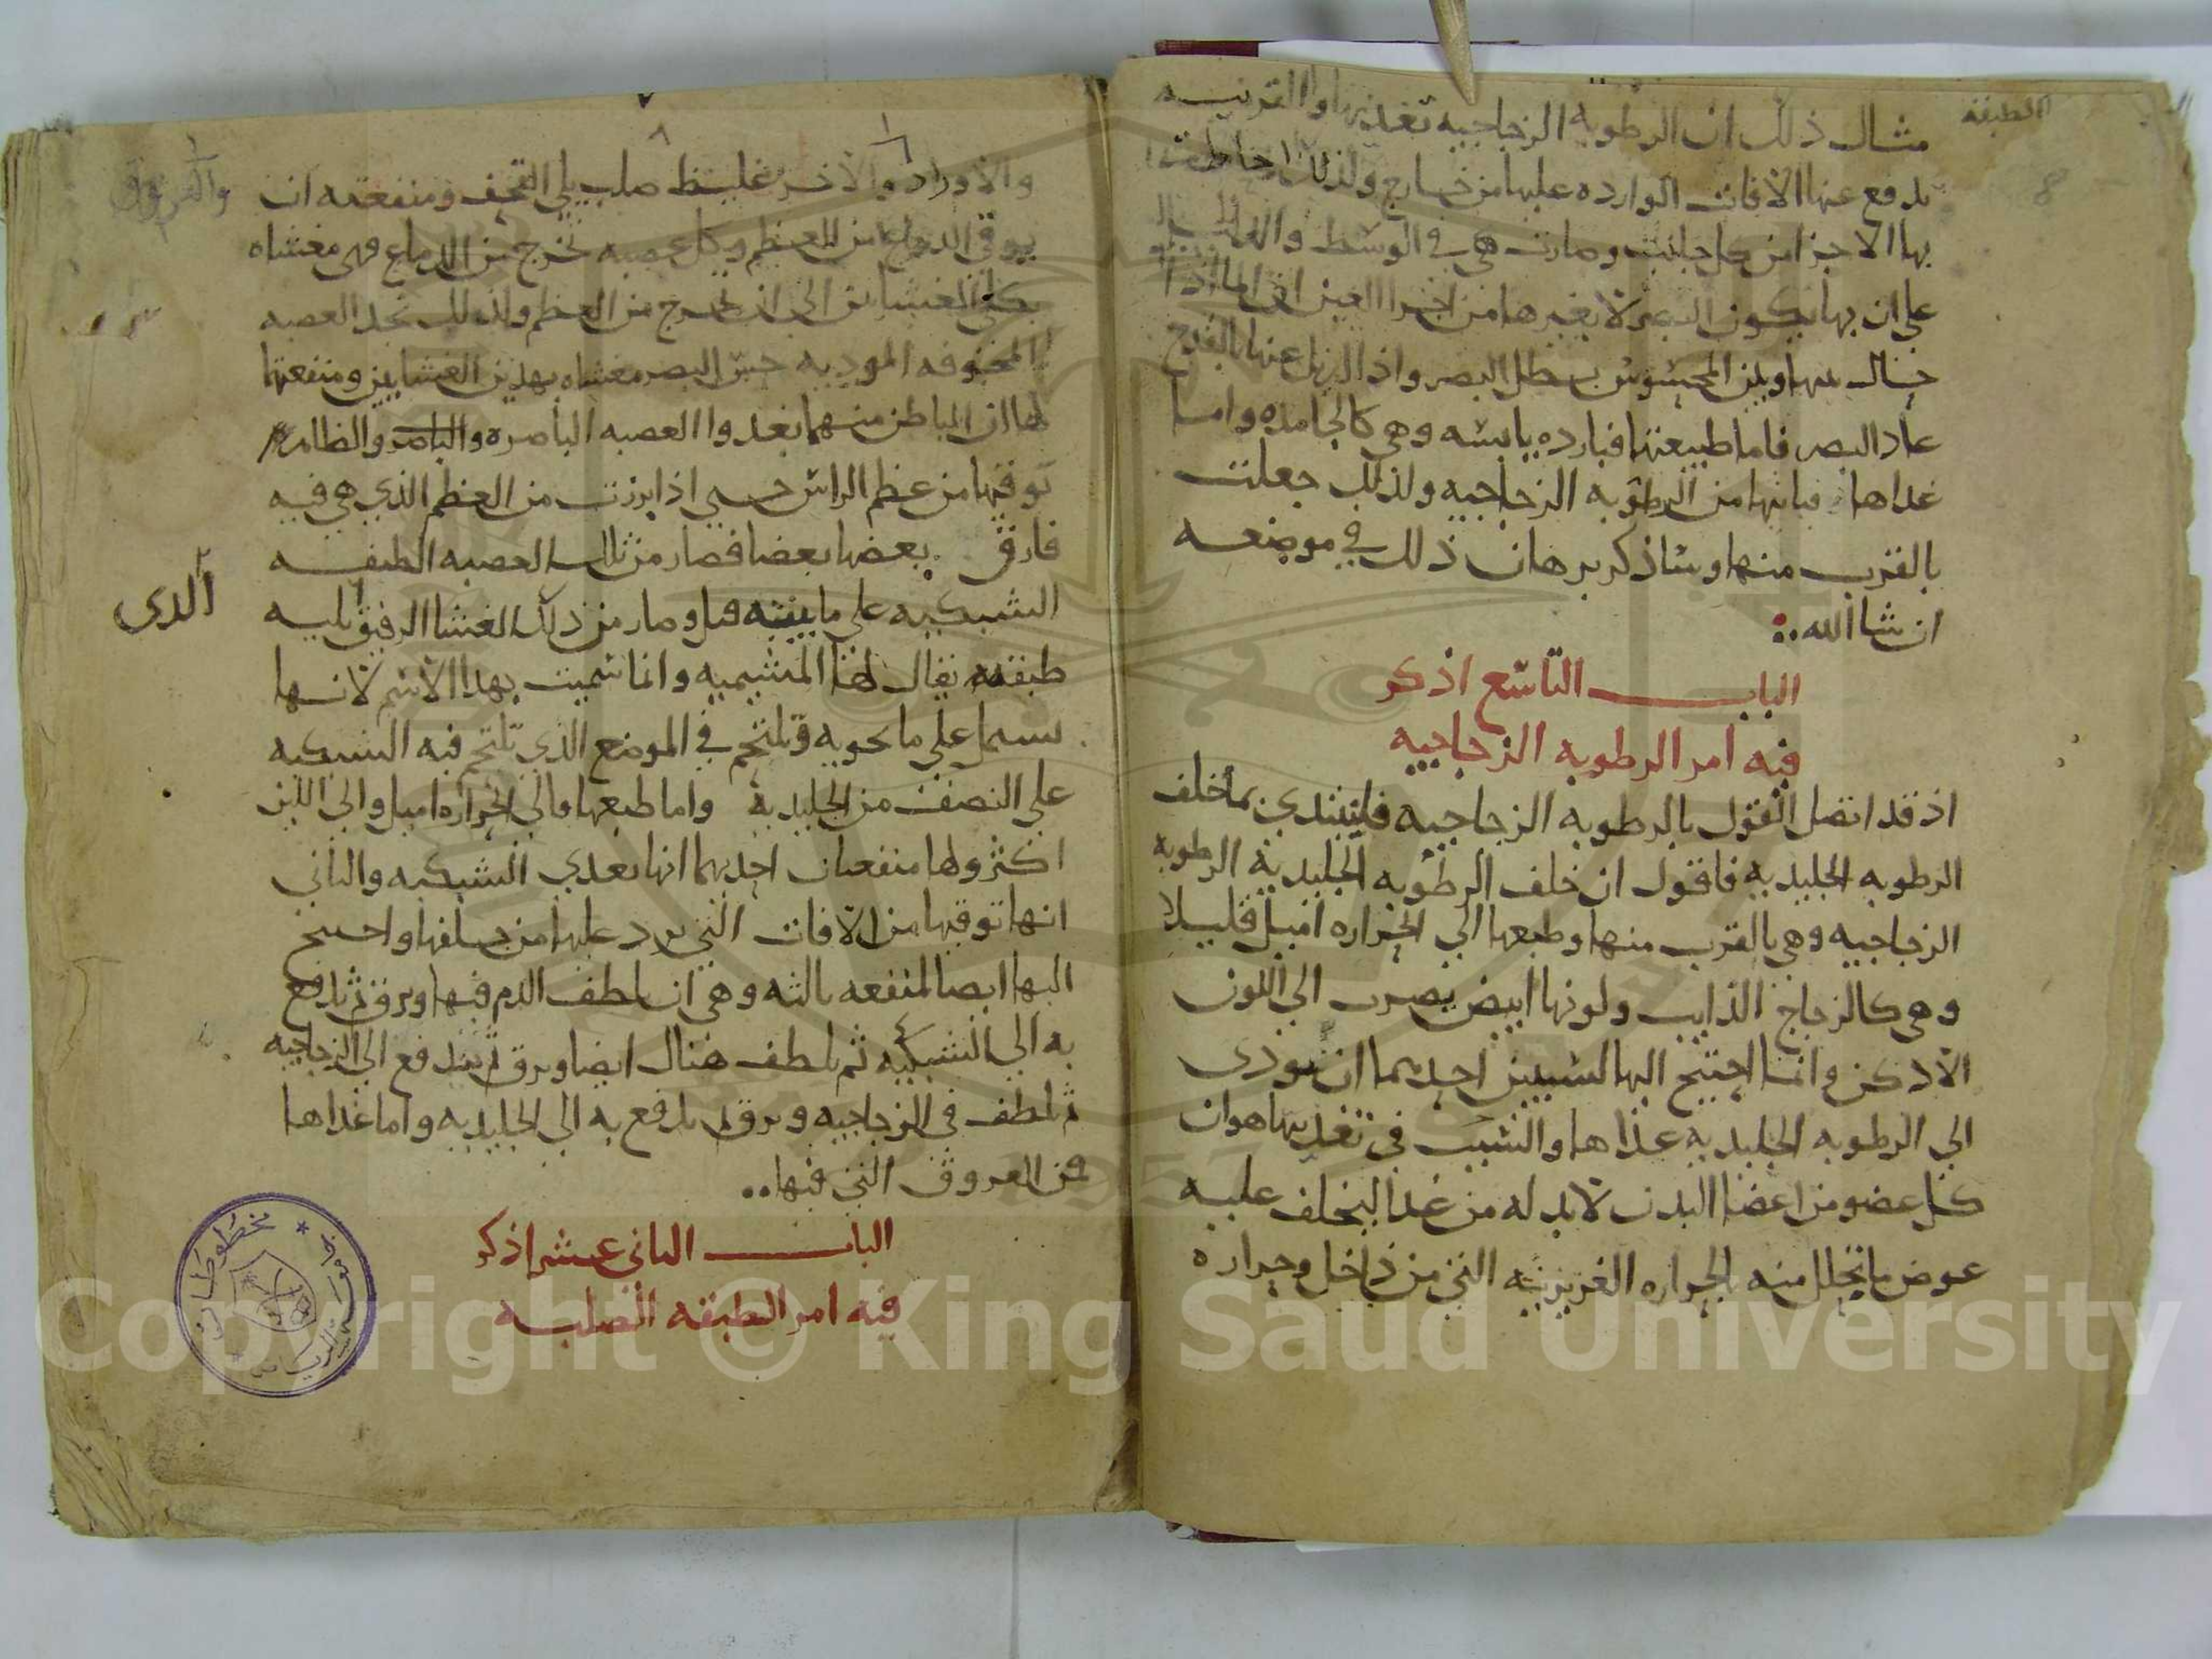 الطبقة
مثال ذلك ان الرطوبه الزجاجيه تغذيها والقرنيه
يدفع عنها الافات الوارده عليها من خارج ولذلك احاطت
بها الاجزا من كل جانب وصارت هي في الوسط
على ان بها يكون البصر لا بغيرها من اجزا العين ان الما اذا
حال بينها وبين المحسوس بطل البصر واذا ازيل عنها بالقدح
عاد البصر فاما طبيعتها فبارده يابسه وهي كالجامده واما
غداها فياتيها من الرطوبه الزجاجيه ولذلك جعلت
بالقرب منها وساذكر برهان ذلك في موضعه
ان شا الله
الباب التاسع اذكر
فيه امر الرطوبه الزجاجيه
اذ قد اتصل القول بالرطوبه الزجاجيه فلنبتدي بما خلف
الرطوبه الجليديه فاقول ان خلف الرطوبه الجليدية الرطوبة
الزجاجيه وهي بالقرب منها وطبعها الي الحراره اميل قليلا
وهي كالزجاج الذايب ولونها ابيض يضرب الي اللون
الادكن وانما احتيج اليها لشيين احديهما ان تودى
الي الرطوبه الجليديه غذاها والسبب في تغذيتها هو ان
كل عضو من اعضا البدن لابد له من غدا ليخلف عليه
عوض ما تحلل منه الحراره الغريزيه التي من داخل وحراره
والعروق
والاوراد والاخر غليظ صلب يلي القحف ومنفعته ان
يوقي الدماغ من العظم وكل عصبه تخرج من الدماغ فهى مغشاه
بكلى الغشاين الى ان تخرج من العظم ولذلك تجد العصبه
المجوفه الموديه حس البصر مغشاه بهدين الغشايين ومنفعتهما
لها ان الباطن منهما يغدوا العصبه الباصره والباصر والظاهر
توقيها من عظم الراس حتي اذا برزت من العظم الذي هي فيه
فارق بعضها بعضا فصار من تلك العصبه الطبقه
الشبكيه على ما بينته قبل وصار من ذلك الغشا الرقيق يليه
الدى
طبقه يقال لها المشيميه وانما سميت بهدا الاسم لانها
تشتمل علي ما تحويه وتلتحم في الموضع الذي تلتحم فيه الشبكيه
علي النصف من الجليديه واما طبعها فالي الحراره اميل والى اللين
اكثر ولها منفعتان احديهما انها تغدي الشبكيه والثاني
انها توقيها من الافات التي ترد عليها من خلفها واحتيج
اليها ايضا لمنفعه ثالثه وهي ان يلطف الدم فيها ويرق ثم يدفع
به الي الشبكيه ثم يلطف هناك ايضا ويرق ثم يندفع الي الزجاجيه
ثم يلطف في الزجاجيه ويرق ثم يدفع به الي الجليديه واما غداها
فمن العروق التي فيها
الباب الثاني عشر اذكر
فيه امر الطبقه الصلبه
مخطوطات
Copyright © King Saud University